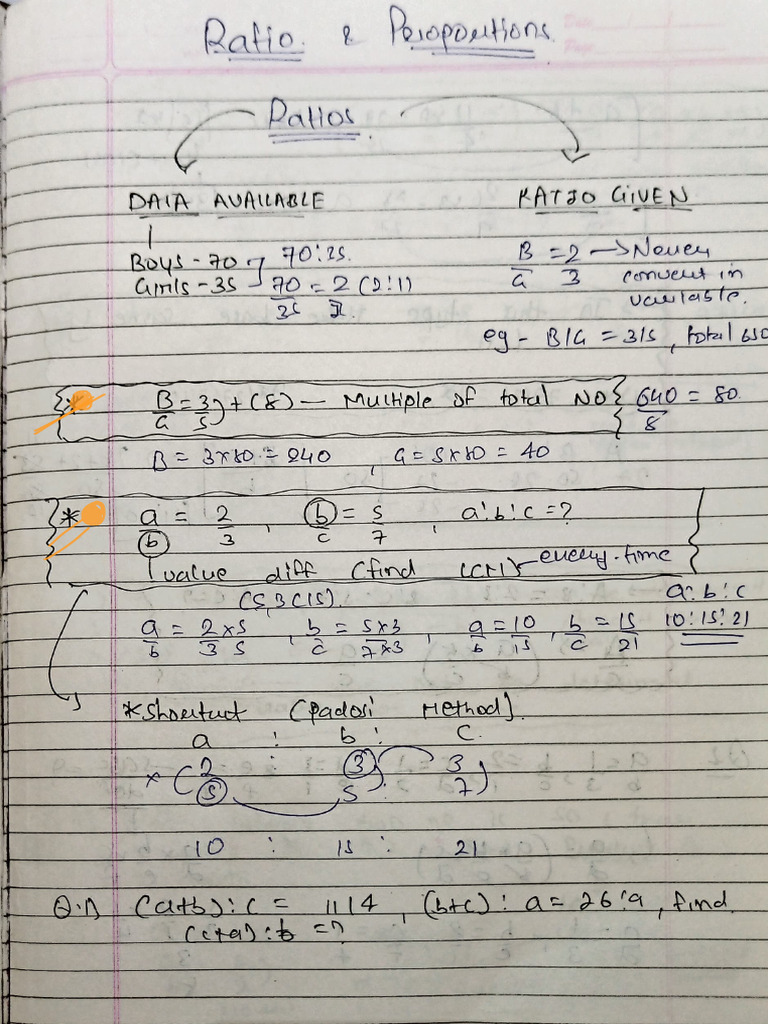 Ratio & Proportions
Ratios
DATA AVAILABLE
RATIO GIVEN
Boys - 70
70:35
Girls - 35
70/35 = 2 (2:1)
B/G = 2/3 → Never
convert in
variable.
eg - B/G = 3/5, total 
* B/G = 3/5 } + (8) — Multiple of total NO
640/8 = 80
B = 3×80 = 240, G = 5×80 = 40
* a/b = 2/3, b/c = 5/7, a:b:c = ?
value diff (find LCM) every time
(5,3(15).
a/b = 2×5/3 5, b/c = 5×3/7×3, a/b = 10/15, b/c = 15/21
a:b:c
10:15:21
* Shortcut (Padosi Method).
a : b : c.
× (2 3 3
5 5 : 7)
10 : 15 : 21
Q.1) (a+b):c = 11:4, (b+c):a = 26:9, find
(c+a):b = ?